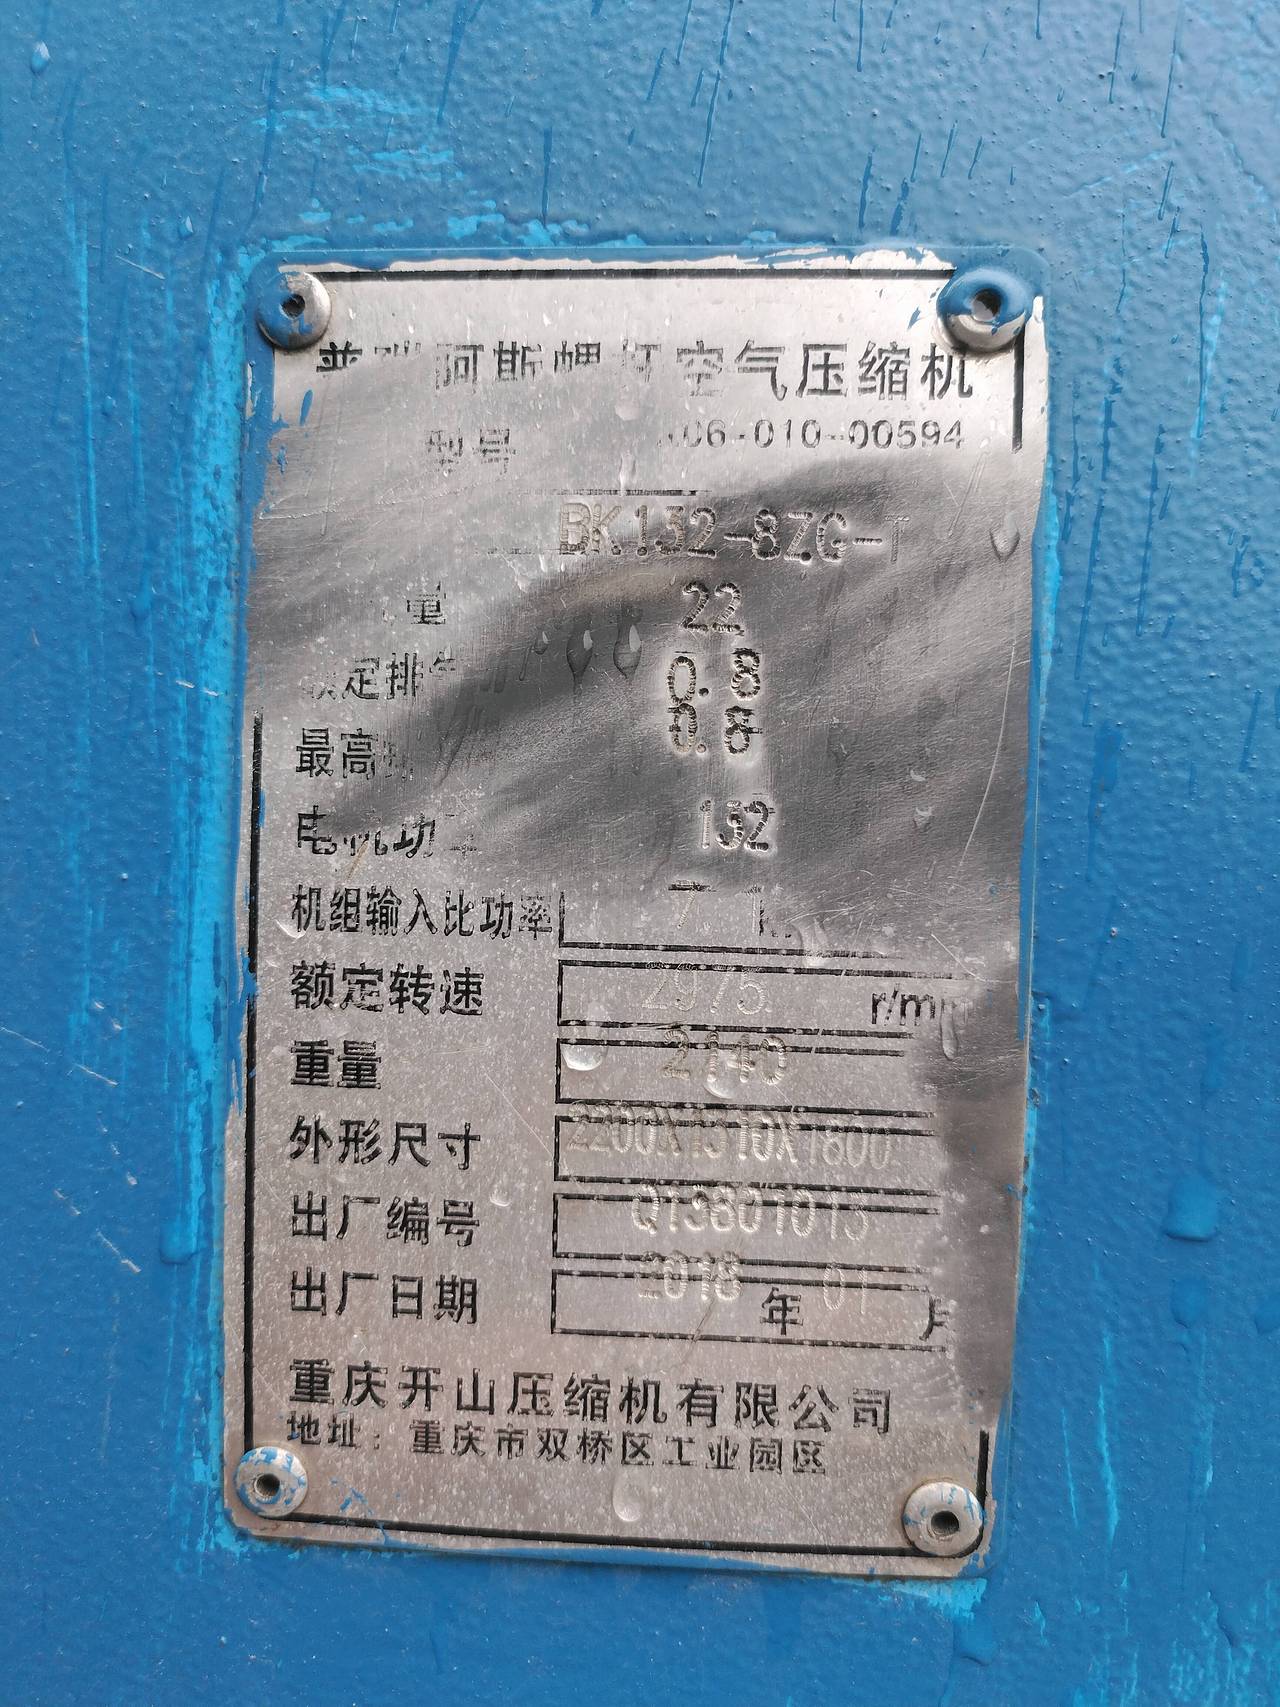 普瑞阿斯螺杆空气压缩机
型号 06-010-00594
BK132-8ZG-T
量 22
额定排气 0.8
最高 0.8
电机功率 132
机组输入比功率 7
额定转速 2975 r/min
重量 2140
外形尺寸 2200X1510X1800
出厂编号
出厂日期 2018 年 01 月
重庆开山压缩机有限公司
地址:重庆市双桥区工业园区